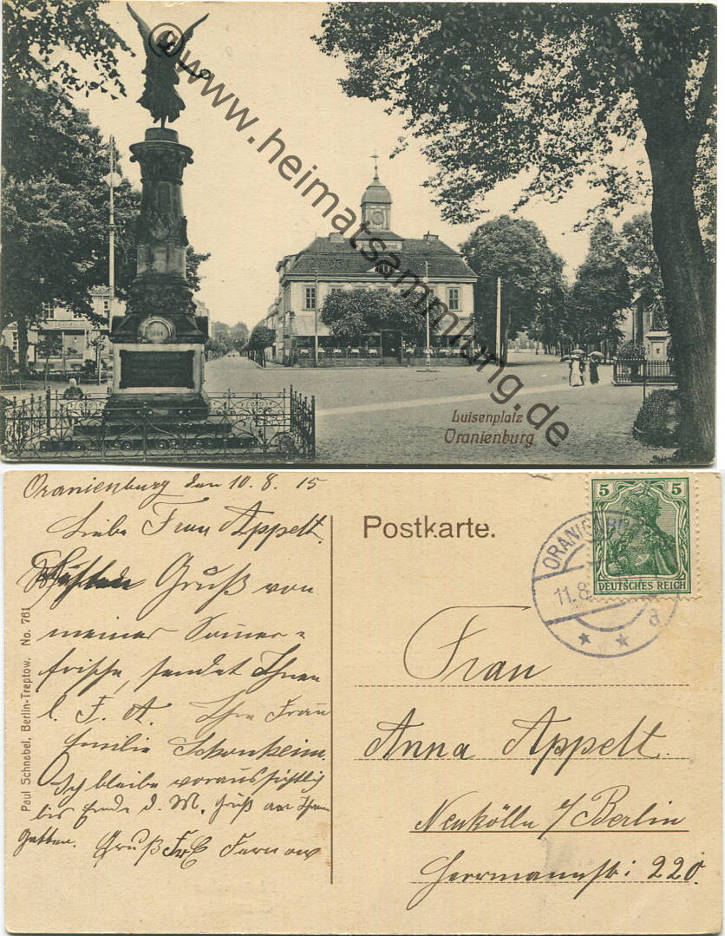 ©www.heimatsammlung.de
Luisenplatz
Oranienburg
Oranienburg den 10.8.15
Liebe Frau Appelt.
Gruß von
meiner Sommer =
frische, sendet Ihnen
l. F. A. Ihre Frau
Emilie Schonheim.
Ich bleibe voraussichtlich
bis Ende d. M. Gruß an Ihren
Gatten. Gruß
Paul Schnabel, Berlin-Treptow. No. 761
Postkarte.
5 5
DEUTSCHES REICH
ORANIENBURG
11.8.
a
Frau
Anna Appelt.
Neukölln b/Berlin
Herrmannstr: 220.